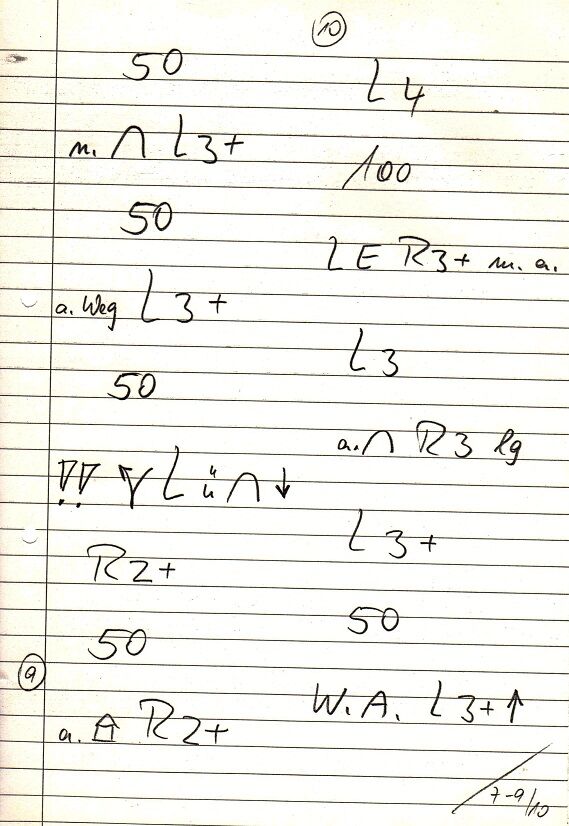 50
m. ∩ L3+
50
a. Weg L3+
50
!! Y L ü ∩ ↓
R2+
50
9
a. R2+
10
L4
100
LE R3+ m. a.
L3
a. ∩ R3 lg
L3+
50
W.A. L3+ ↑
7-9/10